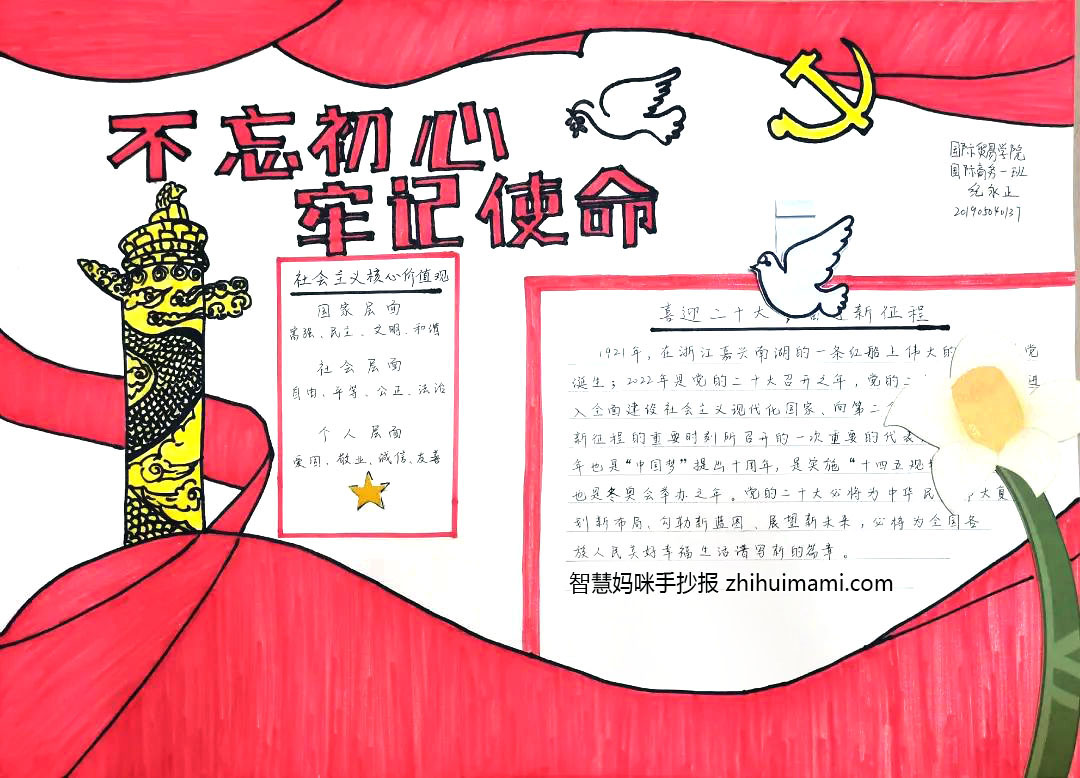 不忘初心
牢记使命
国际贸易学院
国际商务一班
纪永正
201905040137
社会主义核心价值观
国家层面
富强、民主、文明、和谐
社会层面
自由、平等、公正、法治
个人层面
爱国、敬业、诚信、友善
喜迎二十大,新征程
1921年,在浙江嘉兴南湖的一条红船上伟大的党
诞生;2022年是党的二十大召开之年,党的二进
入全面建设社会主义现代化国家、向第二
新征程的重要时刻所召开的一次重要的代表
年也是“中国梦”提出十周年,是实施“十四五规
也是冬奥会举办之年。党的二十大必将为中华民大复
刻新布局、勾勒新蓝图、展望新未来,必将为全国各
族人民美好幸福生活谱写新的篇章。
智慧妈咪手抄报 zhihuimami.com